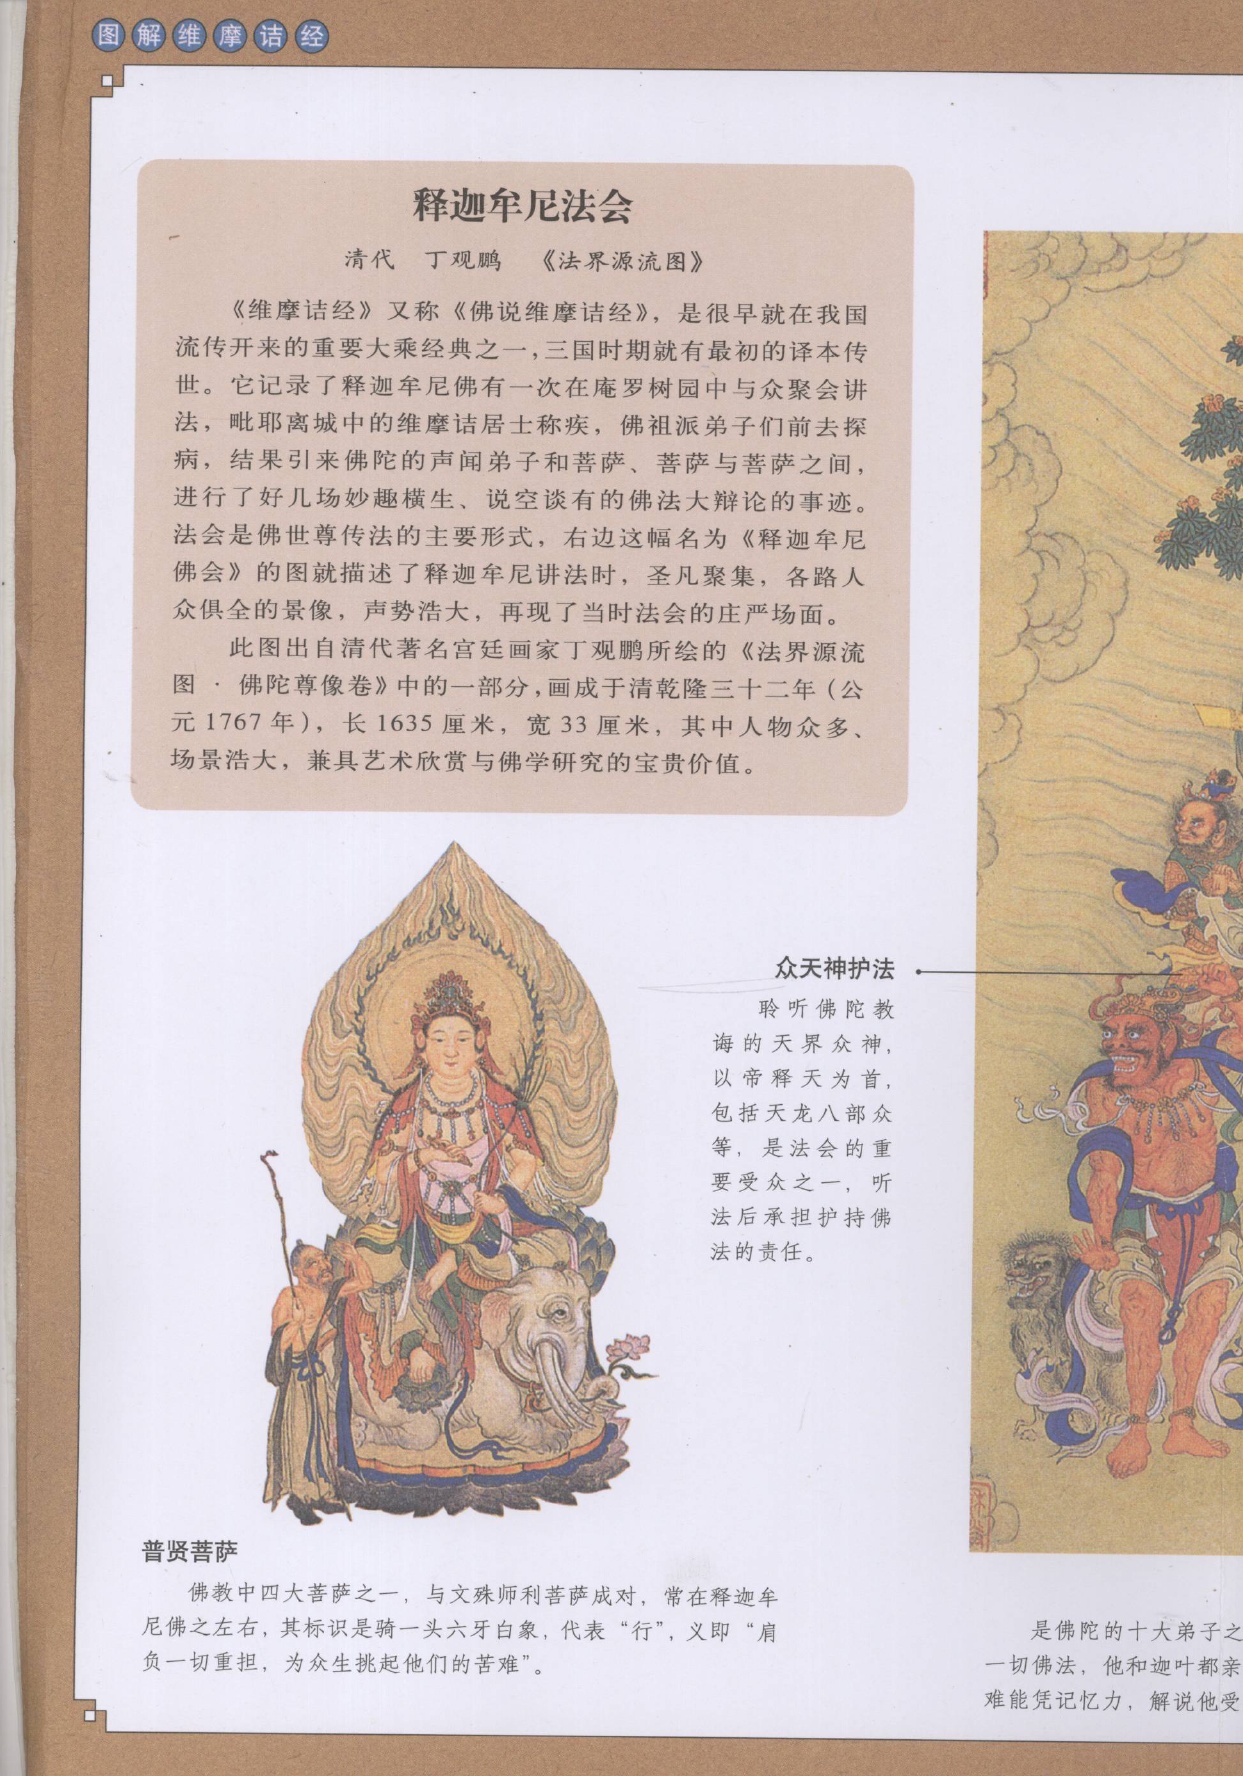 图解维摩诘经
释迦牟尼法会
清代 丁观鹏 《法界源流图》
《维摩诘经》又称《佛说维摩诘经》，是很早就在我国
流传开来的重要大乘经典之一，三国时期就有最初的译本传
世。它记录了释迦牟尼佛有一次在庵罗树园中与众聚会讲
法，毗耶离城中的维摩诘居士称疾，佛祖派弟子们前去探
病，结果引来佛陀的声闻弟子和菩萨、菩萨与菩萨之间，
进行了好几场妙趣横生、说空谈有的佛法大辩论的事迹。
法会是佛世尊传法的主要形式，右边这幅名为《释迦牟尼
佛会》的图就描述了释迦牟尼讲法时，圣凡聚集，各路人
众俱全的景像，声势浩大，再现了当时法会的庄严场面。
此图出自清代著名宫廷画家丁观鹏所绘的《法界源流
图 · 佛陀尊像卷》中的一部分，画成于清乾隆三十二年（公
元1767年），长1635厘米，宽33厘米，其中人物众多、
场景浩大，兼具艺术欣赏与佛学研究的宝贵价值。
众天神护法
聆听佛陀教
诲的天界众神，
以帝释天为首，
包括天龙八部众
等，是法会的重
要受众之一，听
法后承担护持佛
法的责任。
普贤菩萨
佛教中四大菩萨之一，与文殊师利菩萨成对，常在释迦牟
尼佛之左右，其标识是骑一头六牙白象，代表“行”，义即“肩
负一切重担，为众生挑起他们的苦难”。
是佛陀的十大弟子之
一切佛法，他和迦叶都亲
难能凭记忆力，解说他受